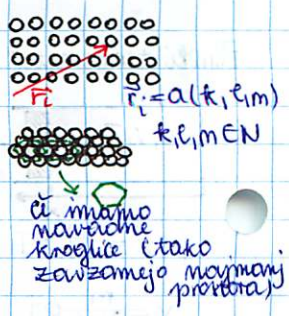 r⃗ᵢ
r⃗ᵢ = a(k, l, m)
k, l, m ∈ N
či imamo
navadne
kroglice (tako
zavzamejo najmanj
prostora)